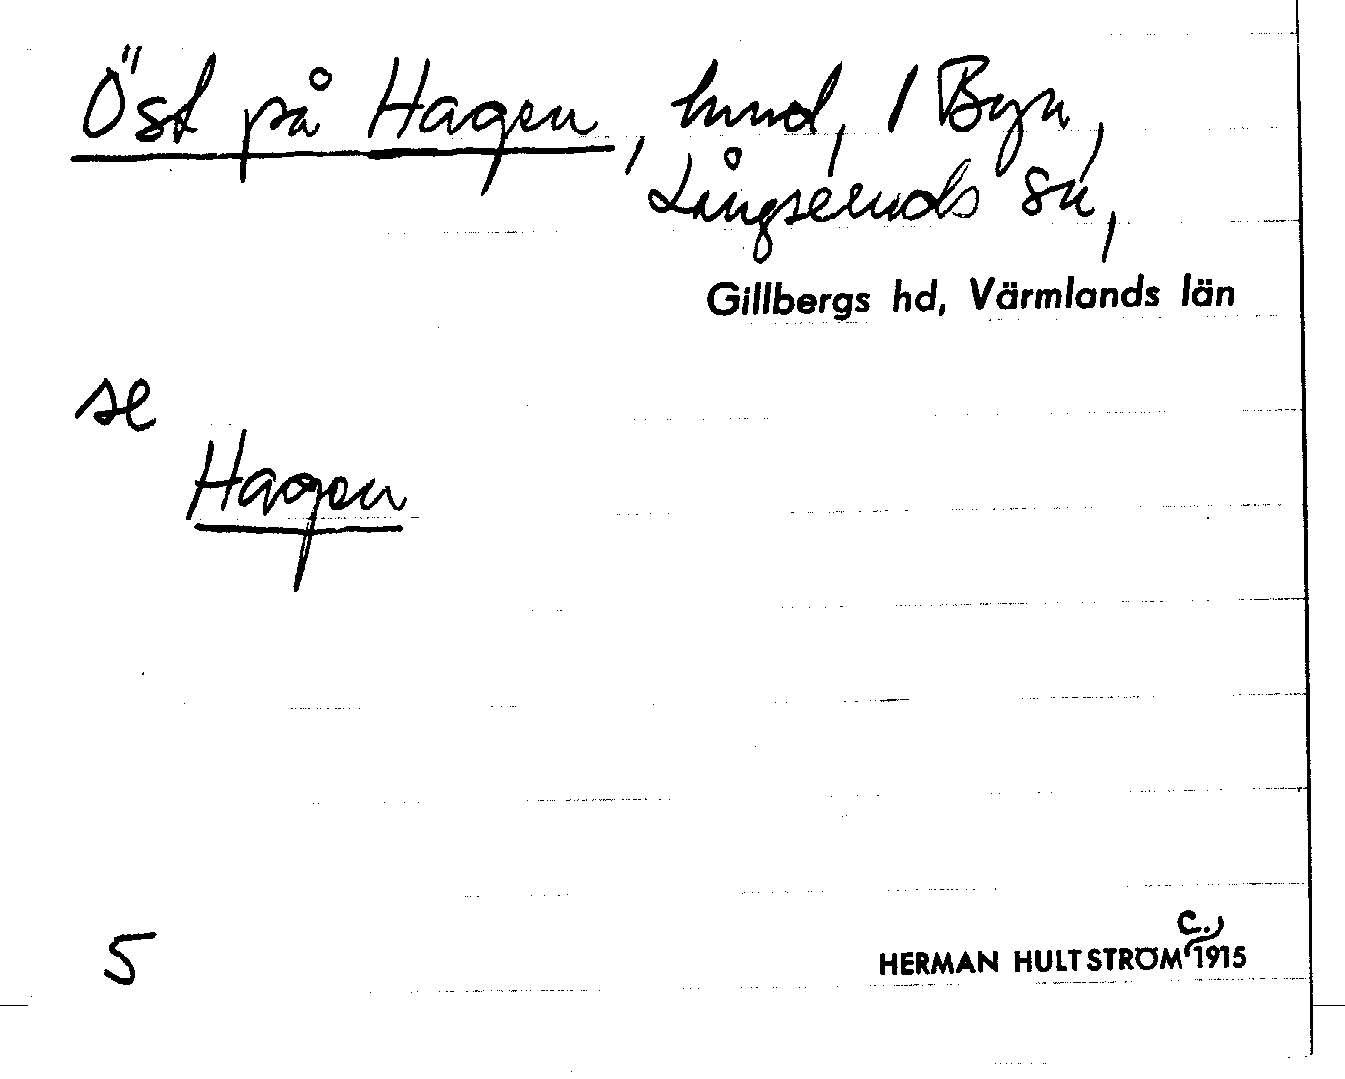 Öst på Hagen, hmd, 1 Byn,
Långseruds sn,
Gillbergs hd, Värmlands län
se
Hagen
5
c.
HERMAN HULTSTRÖM 1915